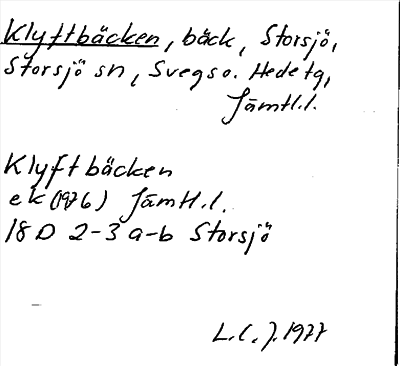 Klyftbäcken, bäck, Storsjö,
Storsjö sn, Svegs o. Hede tg,
Jämtl.l.
Klyftbäcken
ek (1976) Jämtl.l.
18 D 2-3 a-b Storsjö
L.C.J. 1977